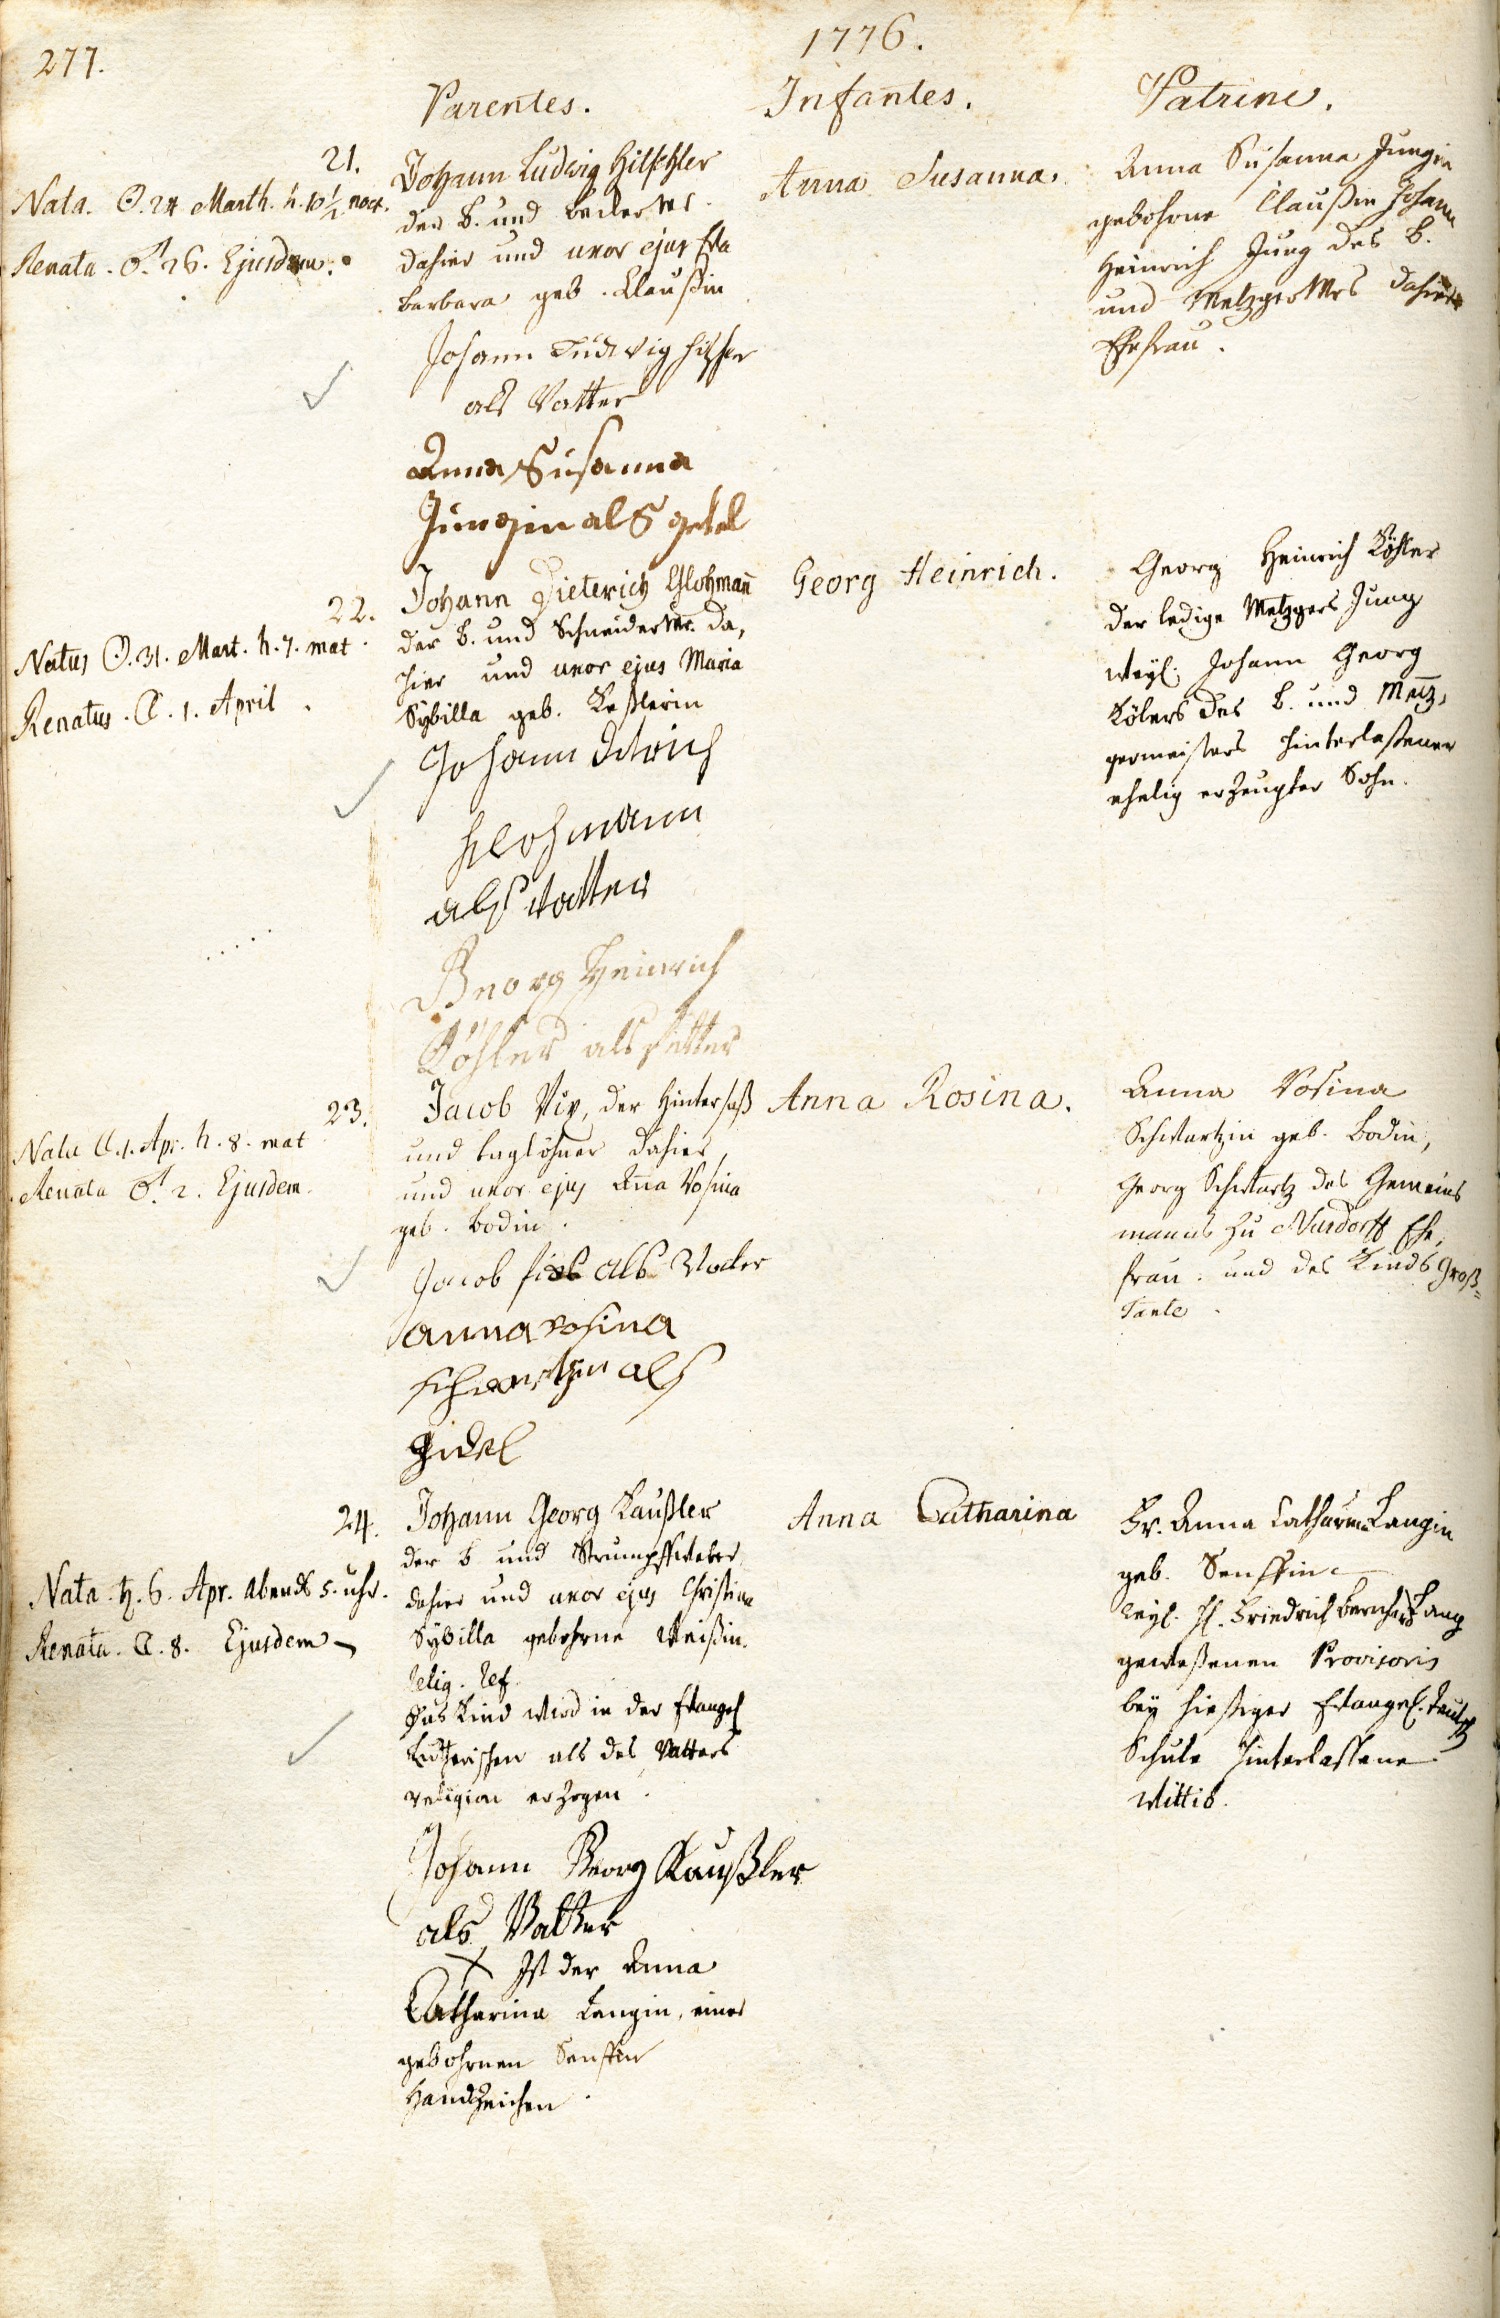 277.
1776.
Parentes.
Infantes.
Patrini.
21.
Nata. ☉. 24 Marth. h. 10 1/2 noct.
Renata. ♂. 26. Ejusdem.
Johann Ludwig Hitschler
der B. und Becker Mr.
dahier und uxor ejus Eva
Barbara geb. Claußin
Johann Ludwig
als Vatter
Anna Susanna
Jungin als getel
Anna Susanna.
Anna Susanna Jungin
gebohrne Claußin Johann
Heinrich Jung des B.
und Metzger Mrs dahier
Ehefrau.
22.
Natus ☉. 31. Mart. h. 7. mat.
Renatus. ☾. 1. April.
Johann Dieterich Hlohman̄
der B. und Schneider Mr. da,
hier und uxor ejus Maria
Sybilla geb. Keßlerin
Johann Ditrich
Hlohmann
als Vatter
Georg Heinrich
Köhler als Petter
Georg Heinrich.
Georg Heinrich Köhler
der ledige Metzgers Jung
weyl. Johann Georg
Kölers des B. und Metz,
germeisters hinterlaßener
ehelig erzeugter Sohn.
23.
Nata ☾. 1. Apr. h. 8. mat
Renata ♂. 2. Ejusdem.
Jacob Vix, der Hintersaß
und taglöhner dahier,
und uxor ejus Ana Rosina
geb. Bodin.
Jacob als Vader
anna rosina
schwartzin als
Gidel
Anna Rosina.
Anna Rosina
Schwartzin geb. Bodin,
Georg Schwartz des Gemeins
manns zu Nusdorff Ehe,
frau. und des Kinds Groß=
Tante.
24.
Nata ♄. 6. Apr. Abends 5. uhr.
Renata. ☾. 8. Ejusdem
Johann Georg Kaußler
der B und Strumpffweber
dahier und uxor ejus Christina
Sybilla gebohrne Weißin.
relig. ref.
Das Kind wird in der Evangel
Lutherischen als des Vatters
religion erzogen.
Johann Georg Kaußler
als Vatter
X Ist der Anna
Catharina Langin, einer
gebohrnen Senffin
Handzeichen.
Anna Catharina
Fr. Anna Catharina Langin
geb. Senffin
weyl. H. Friedrich Bernhard Lang
geweßenen Provisoris
bey hiesiger Evangel. teutsch
Schule hinterlassene
Wittib.